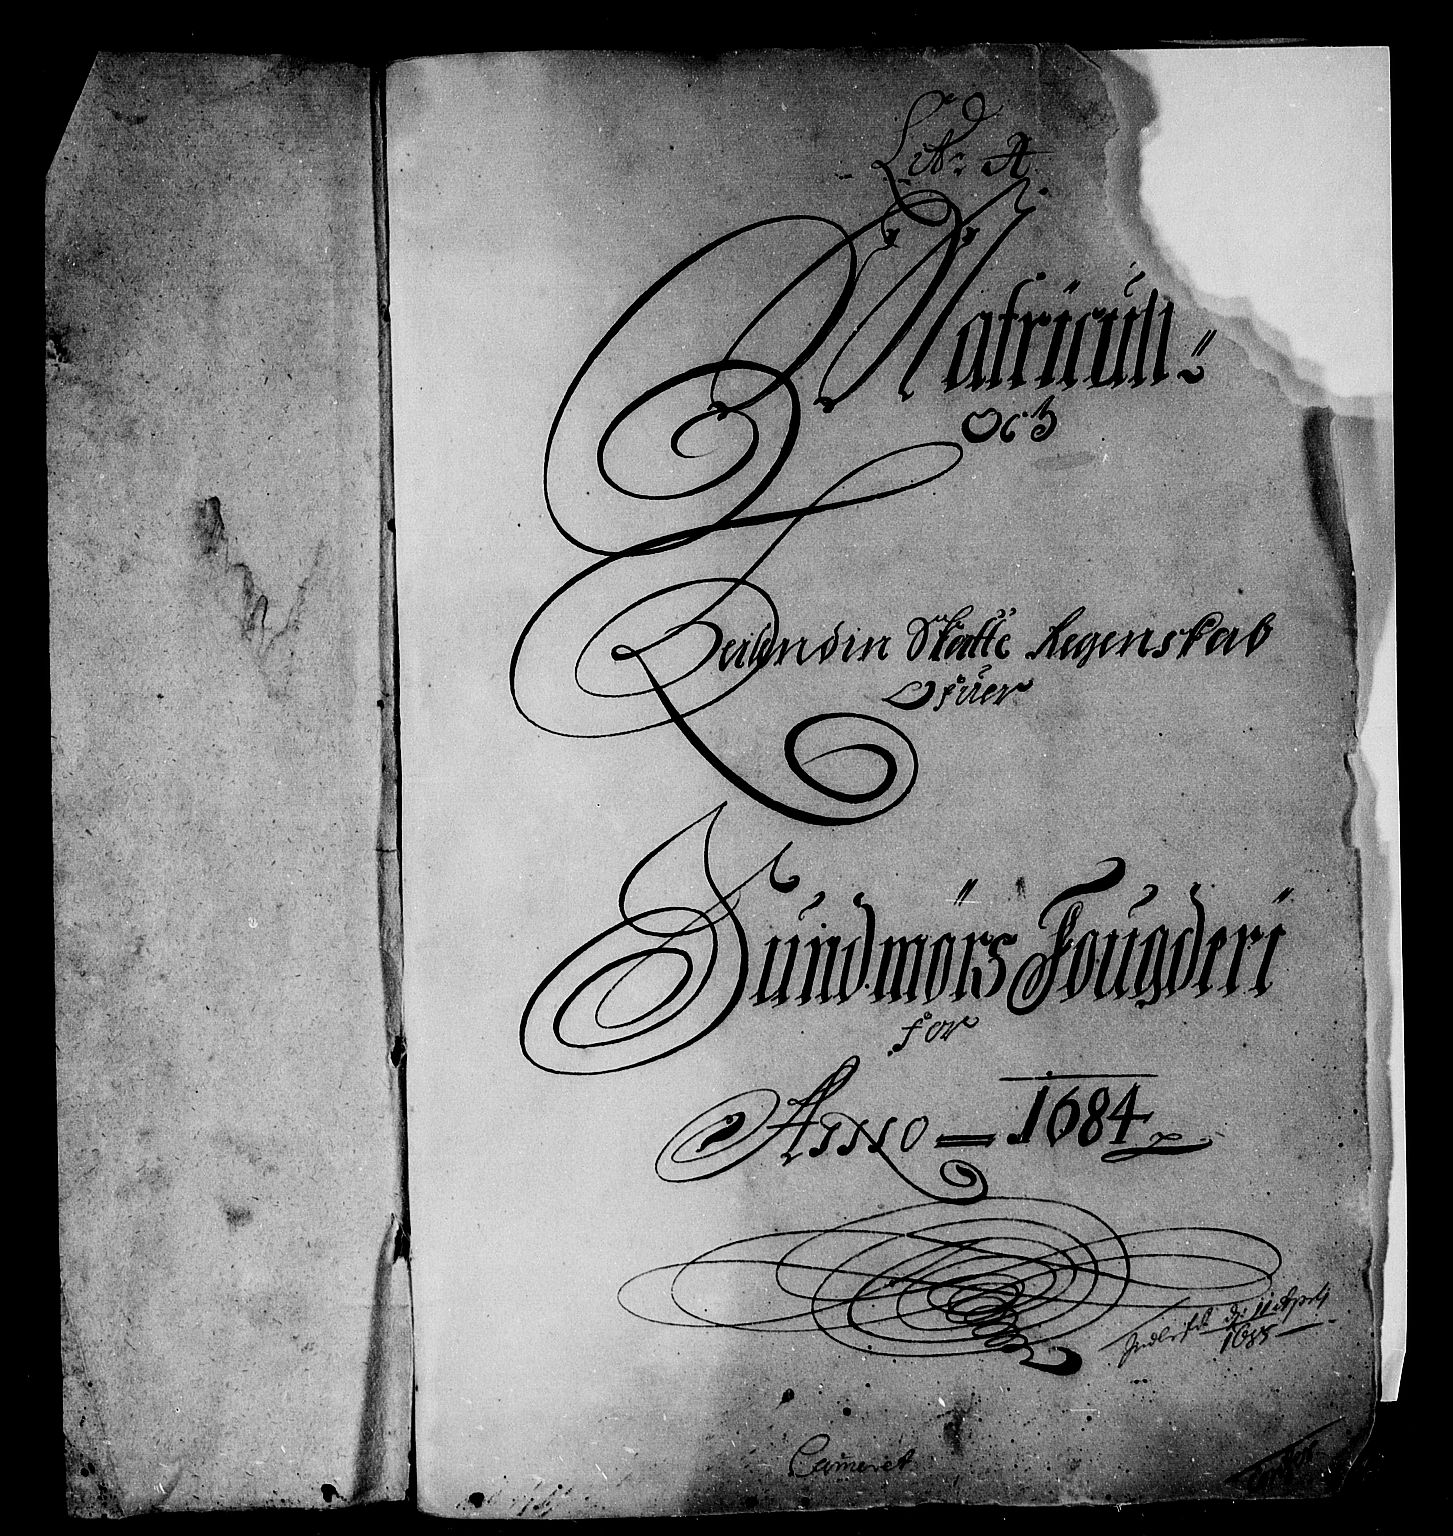 Lit: A
Matricull
och
Leilendin Skatte Regenskab
Ofuer
Sundmörs Fougderi
for
Anno 1684
Indlefd d: 11 April
1685
Cameret